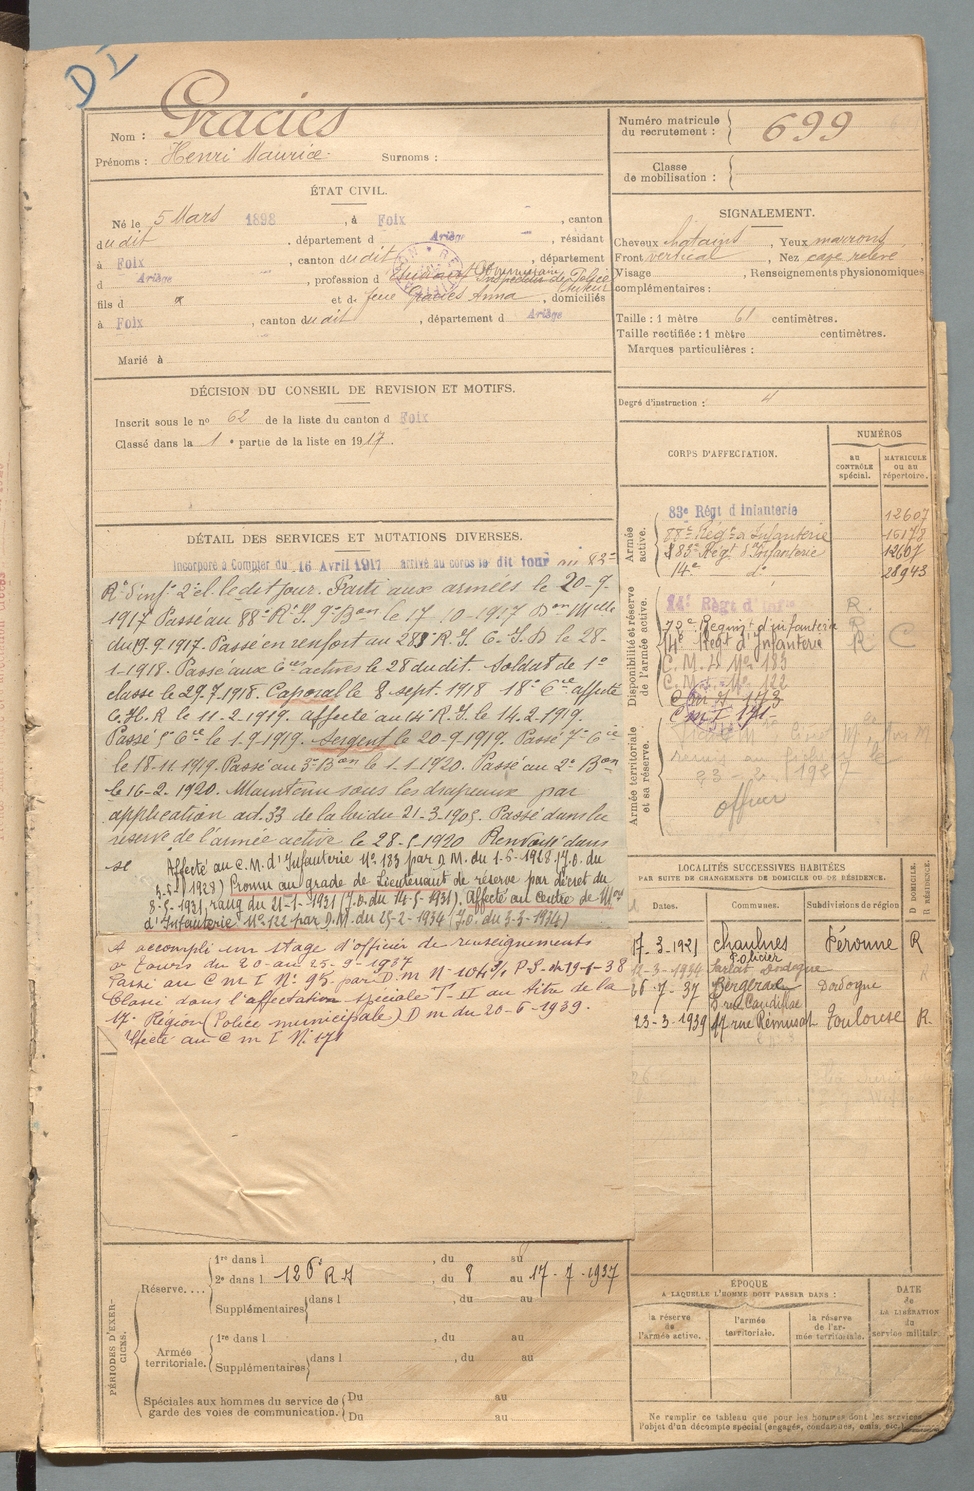 D I
Nom : Gracies
Prénoms : Henri Maurice Surnoms :
ÉTAT CIVIL.
Né le 5 Mars 1898, à Foix, canton
dudit, département d Ariège, résidant
à Foix, canton dudit, département
d Ariège, profession d
fils d x et de feue Gracies Anna, domiciliés
à Foix, canton dudit, département d Ariège
Marié à
DÉCISION DU CONSEIL DE REVISION ET MOTIFS.
Inscrit sous le no 62 de la liste du canton d Foix
Classé dans la 1e partie de la liste en 1917.
DÉTAIL DES SERVICES ET MUTATIONS DIVERSES.
Incorporé à compter du 16 Avril 1917 arrivé au corps le dit jour au 83e
Rt d'inf. 2e cl. le dit jour. Parti aux armées le 20-9-
1917 Passé au 88e R.I. 9e Bon le 17-10-1917 Don Mlle
du 19.9.1917. Passé en renfort au 283 R.I. C.I.D le 28-
1-1918. Passé aux Cies actives le 28 du dit. Soldat de 1e
classe le 29.7.1918. Caporal le 8 sept. 1918 18e Cie affecté
C.H.R le 11-2-1919. affecté au 14e R.I. le 14.2.1919.
Passé 5e Cie le 1.9.1919. Sergent le 20-9-1919. Passé 7e Cie
le 18-11-1919. Passé au 3e Bon le 1.1.1920. Passé au 2e Bon
le 16-2.1920. Maintenu sous les drapeaux par
application art. 33 de la loi du 21-3-1905. Passé dans la
réserve de l'armée active le 28-5-1920 Renvoyé dans
se
Affecté au C.M. d'Infanterie No 183 par D.M. du 1-5-1928 (J.O. du
3-5-1928) Promu au grade de Lieutenant de réserve par décret du
8-5-1931, rang du 21-1-1931 (J.O. du 14-5-1931). Affecté au Centre de Mon
d'Infanterie No 122 par D.M. du 25-2-1934 (J.O. du 3-3-1934)
A accompli un stage d'officier de renseignements
à Tours du 20 au 25-9-1937
Passé au C M I No 95 par D.M No
Classé dans l'affectation spéciale T-II au titre de la
17e Région (Police municipale) D m du 20-6-1939.
Affecté au C m I No 171
PÉRIODES D'EXERCICES.
Réserve....
1re dans l , du au
2e dans l 126e R I, du 8 au 17-7-1937
Supplémentaires dans l , du au
Armée territoriale.
1re dans l , du au
Supplémentaires dans l , du au
Spéciales aux hommes du service de garde des voies de communication.
Du au
Du au
Numéro matricule du recrutement : 699
Classe de mobilisation :
SIGNALEMENT.
Cheveux chatains, Yeux marrons,
Front vertical, Nez cave relevé
Visage , Renseignements physionomiques
complémentaires :
Taille : 1 mètre 61 centimètres.
Taille rectifiée : 1 mètre centimètres.
Marques particulières :
Degré d'instruction : 4
CORPS D'AFFECTATION.
NUMÉROS
AU CONTRÔLE spécial.
MATRICULE ou au répertoire.
Armée active.
83e Régt d'Infanterie 12607
88e Régt d'Infanterie 15178
283e Régt d'Infanterie 12607
14e do 28943
Disponibilité et réserve de l'armée active.
14e Régt d'Infie R.
72e Regiment d'infanterie R
14e Régt d'Infanterie R C
C. M. I. No 183
C. M. I. No 122
C m I 171
Armée territoriale et sa réserve.
23-2-1927
officier
LOCALITÉS SUCCESSIVES HABITÉES
PAR SUITE DE CHANGEMENTS DE DOMICILE OU DE RÉSIDENCE.
Dates. Communes. Subdivisions de région D DOMICILE. R RÉSIDENCE.
17-3-1921 Chaulnes Péronne R
Policier
12-3-1934 Sarlat Dordogne
26-7-37 Bergerac Dordogne
23-3-1939 17 rue Rémusat Toulouse R.
ÉPOQUE
A LAQUELLE L'HOMME DOIT PASSER DANS :
la réserve de l'armée active.
l'armée territoriale.
la réserve de l'armée territoriale.
DATE de LA LIBÉRATION du service militair.
Ne remplir ce tableau que pour les hommes dont les services
l'objet d'un décompte spécial (engagés, condamnés, omis, etc.).